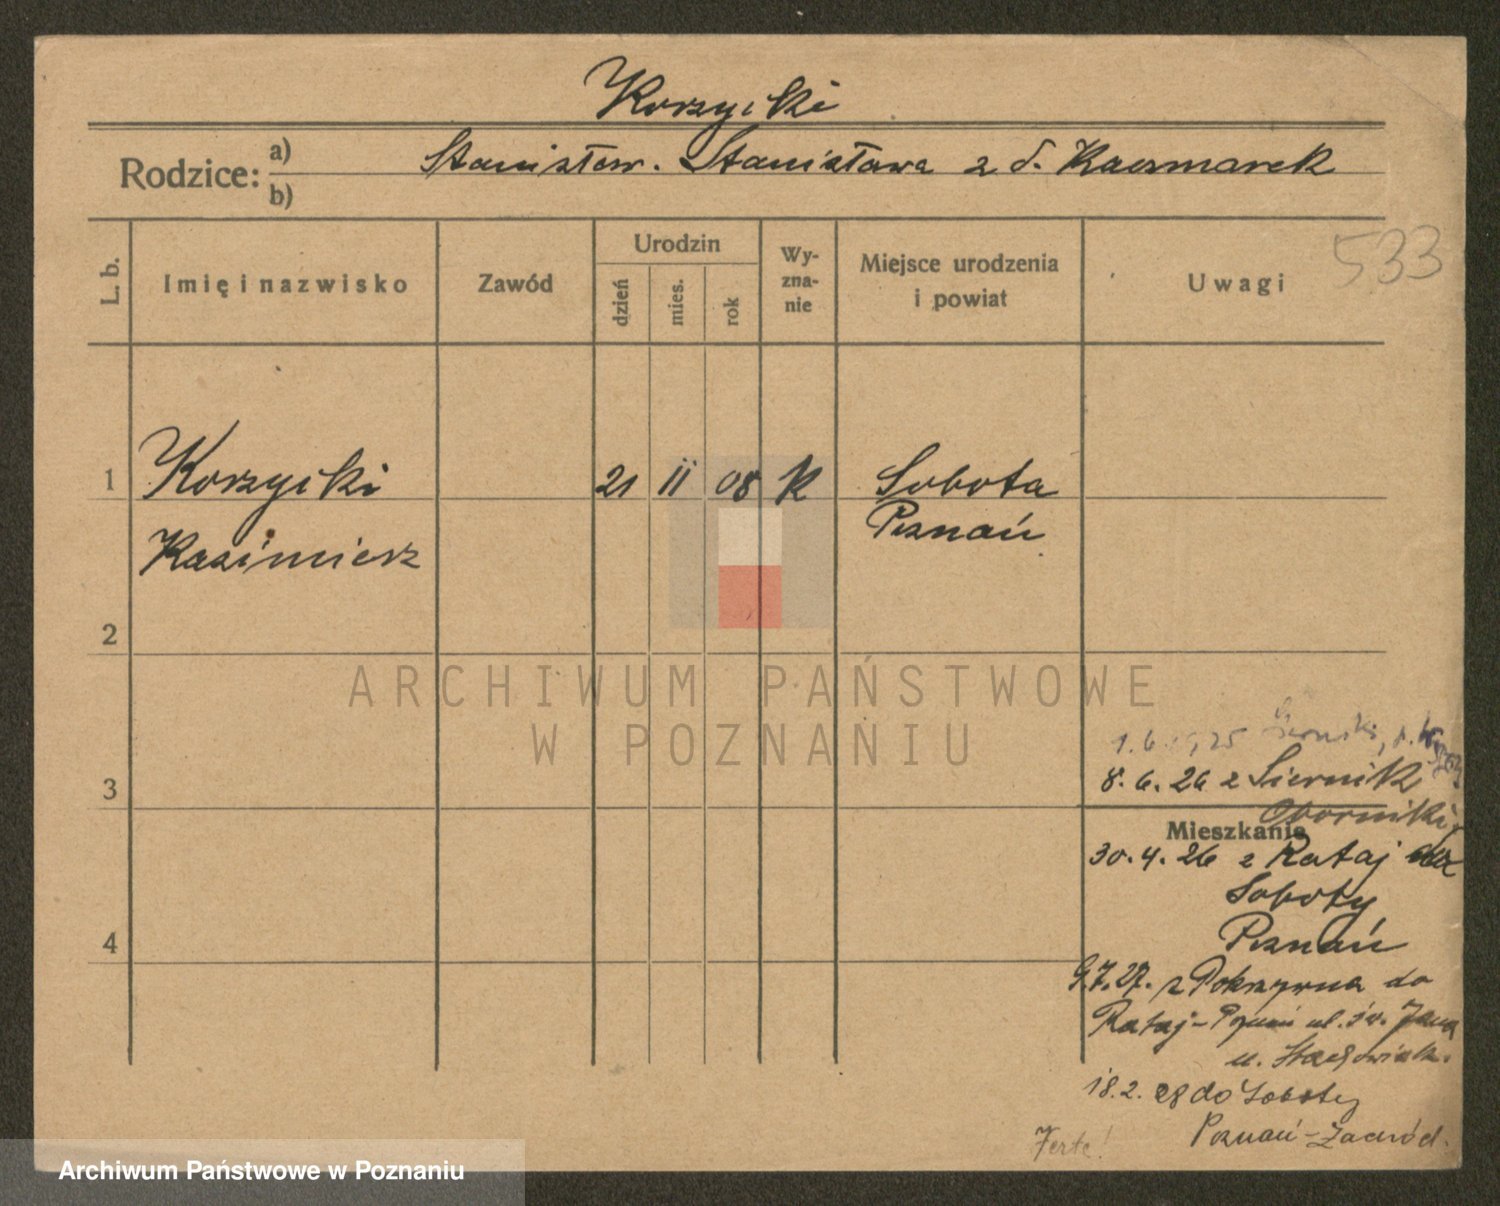 Korzycki
Rodzice: a) b) Stanisław. Stanisława z d. Kaczmarek
533
L. b. Imię i nazwisko Zawód Urodzin dzień mies. rok Wyznanie Miejsce urodzenia i powiat Uwagi
1 Korzycki 21 II 08 K Sobota
Kazimierz Poznań
2
ARCHIWUM PAŃSTWOWE
W POZNANIU
1.6.1925
3 8.6.26 z Siernik
Oborniki
Mieszkanie
30.4.26 z Rataj do
Soboty
4 Poznań
9.7.27. z Pokrzywna do
Rataj - Poznań ul. św. Jana
u.
18.2.28 do Soboty
Poznań - Zachód.
Verte!
Archiwum Państwowe w Poznaniu